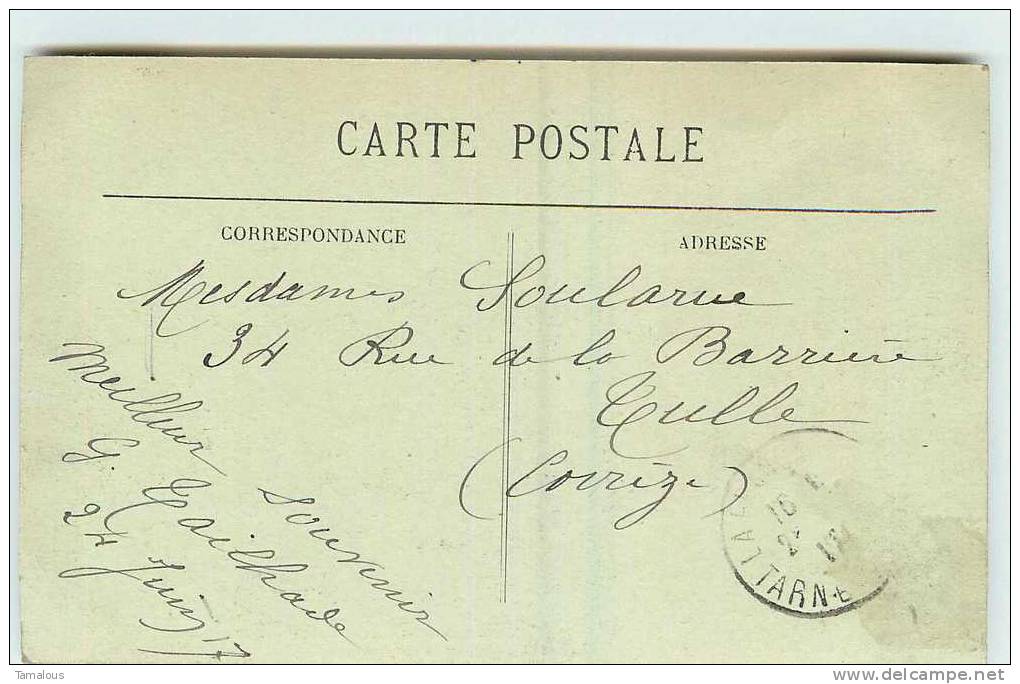 CARTE POSTALE
CORRESPONDANCE
ADRESSE
Mesdames Soularue
34 Rue de la Barrière
Tulle
(Corrèze)
Meilleur souvenir
G. Tailhade
24 Juin 17
TARN-E
Tamalous
www.delcampe.net